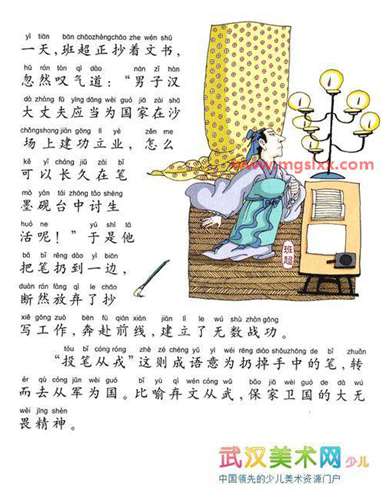 yì tiān bān chāozhèngchāo zhe wén shū
一天，班超正抄着文书，
hū rán tàn qì dào nán zǐ hàn
忽然叹气道：“男子汉
dà zhàng fu yīng dāng wèi guó jiā zài shā
大丈夫应当为国家在沙
chǎngshang jiàn gōng lì yè zěn me
场上建功立业，怎么
kě yǐ cháng jiǔ zài bǐ
可以长久在笔
mò yàn tái zhōng tǎo shēng
墨砚台中讨生
huó ne yú shì tā
活呢！”于是他
bǎ bǐ rēng dào yì biān
把笔扔到一边，
duàn rán fàng qì le chāo
断然放弃了抄
xiě gōng zuò bēn fù qián xiàn jiàn lì le wú shù zhàn gōng
写工作，奔赴前线，建立了无数战功。
tóu bǐ cóng róng zhè zé chéng yǔ yì wéi rēng diào shǒuzhōng de bǐ zhuǎn
“投笔从戎”这则成语意为扔掉手中的笔，转
ér qù cóng jūn wèi guó bǐ yù qì wén cóng wǔ bǎo jiā wèi guó de dà wú
而去从军为国。比喻弃文从武，保家卫国的大无
wèi jīng shén
畏精神。
www.mgsixx.com
班超
武汉美术网少儿
中国领先的少儿美术资源门户